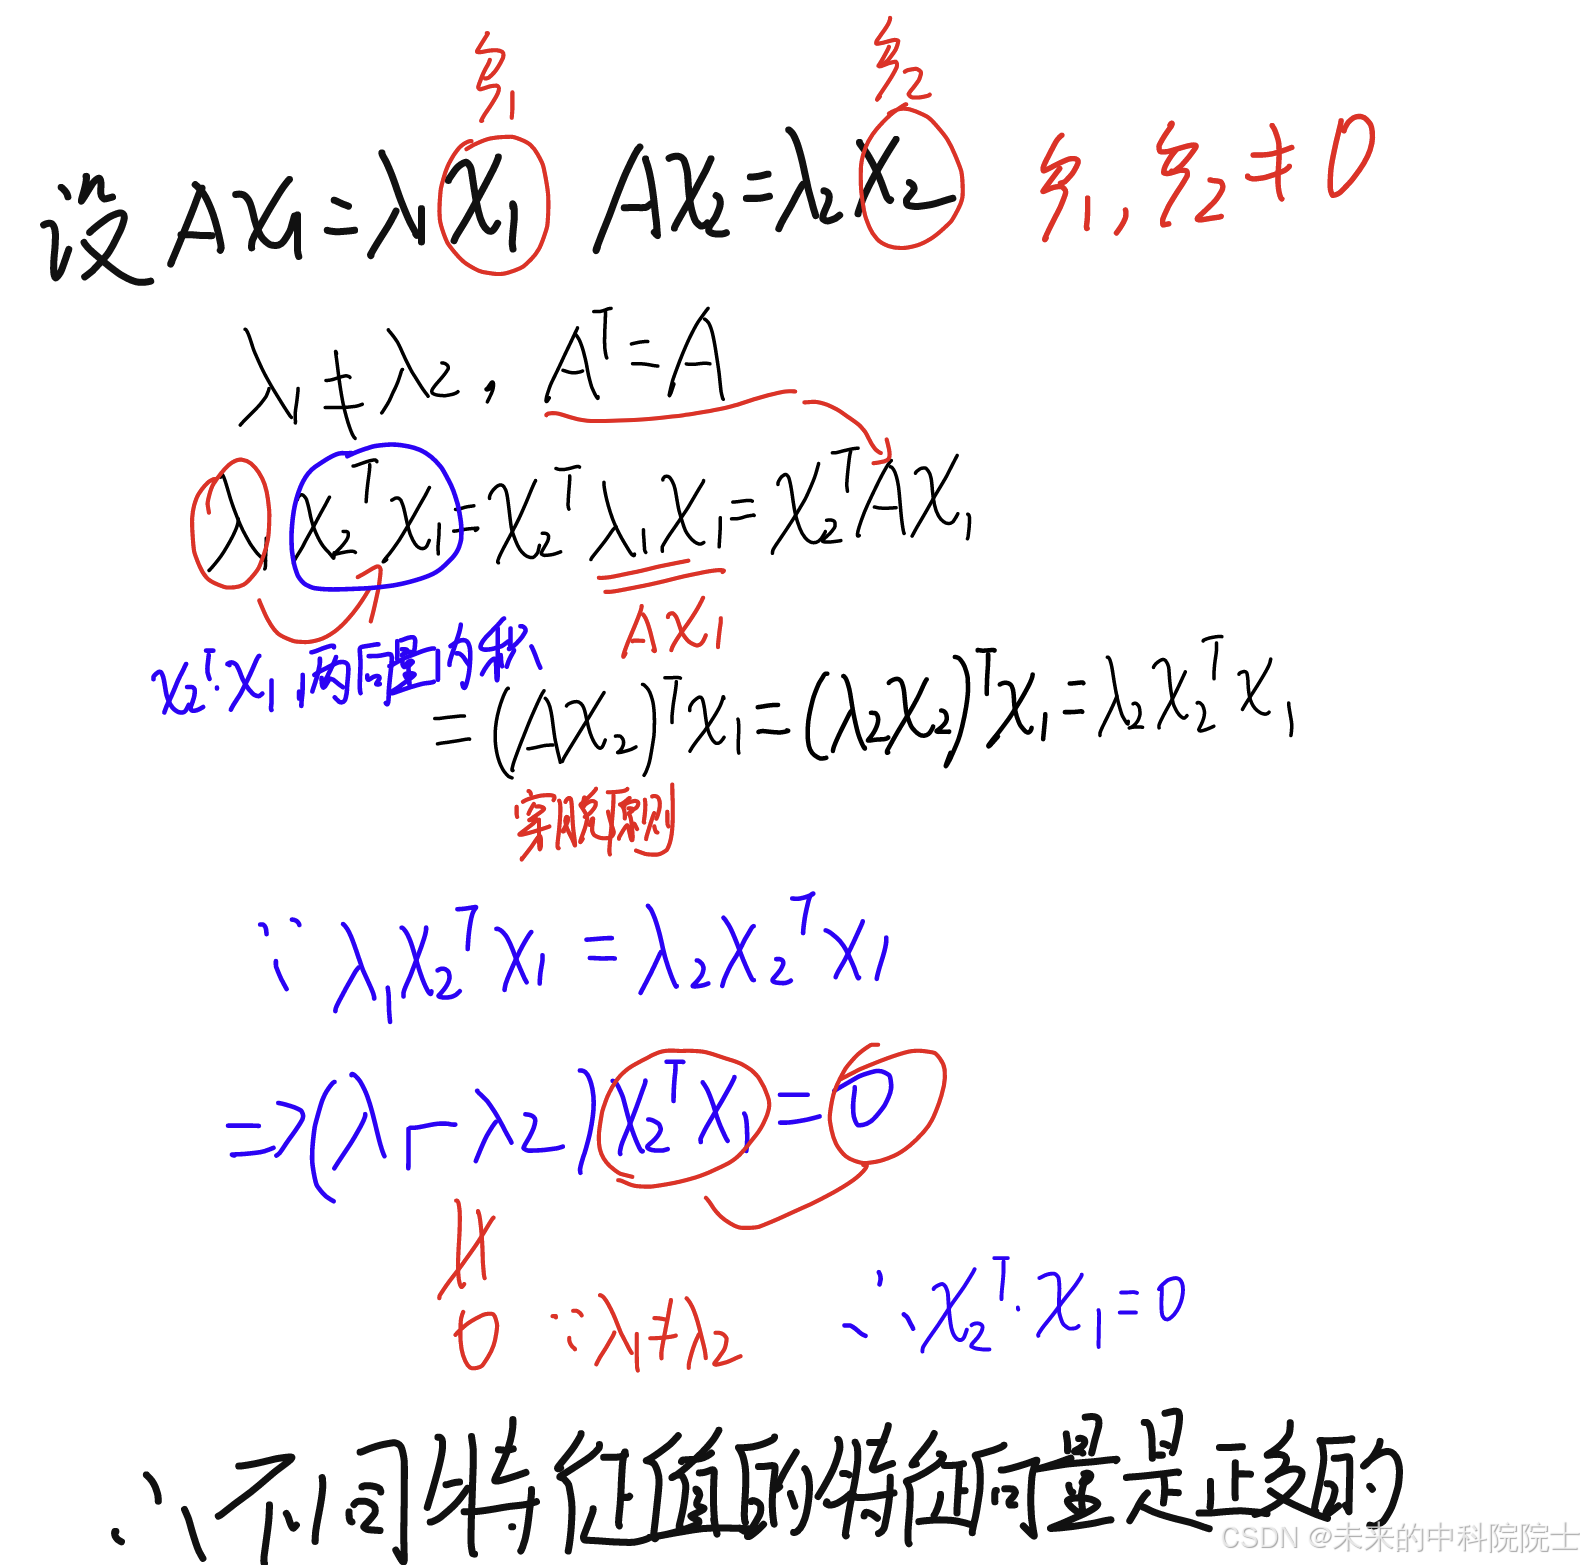 ξ₁ ξ₂
设 Ax₁=λ₁x₁ Ax₂=λ₂x₂ ξ₁, ξ₂≠0
λ₁≠λ₂, Aᵀ=A
λ₁x₂ᵀx₁=x₂ᵀλ₁x₁=x₂ᵀAx₁
Ax₁
x₂ᵀ·x₁,两向量内积
=(Ax₂)ᵀx₁=(λ₂x₂)ᵀx₁=λ₂x₂ᵀx₁
穿脱原则
∵λ₁x₂ᵀx₁=λ₂x₂ᵀx₁
=>(λ₁-λ₂)x₂ᵀx₁=0
∦
0 ∵λ₁≠λ₂ ∴x₂ᵀ·x₁=0
∴不同特征值的特征向量是正交的
CSDN @未来的中科院院士